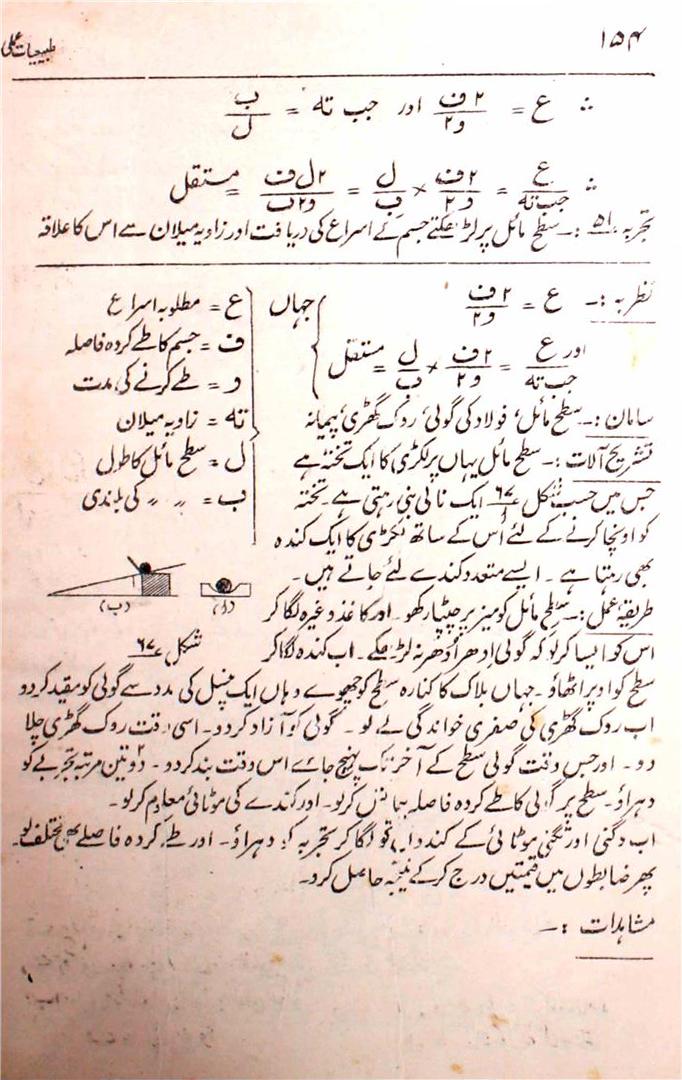 ۱۵۴ طبیعیات عملی
∴ ع = ۲ف/و۲ اور جب تہ = ب/ل
∴ ع/جب تہ = ۲ف/و۲ × ل/ب = ۲ل ف/و۲ب = مستقل
تجربہ ۵۱ :۔ سطح مائل پر لڑھکتے جسم کے اسراع کی دریافت اور زاویہ میلان سے اس کا علاقہ
نظریہ :۔ ع = ۲ف/و۲
اور ع/جب تہ = ۲ف/و۲ × ل/ب = مستقل
جہاں
ع = مطلوبہ اسراع
ف = جسم کا طے کردہ فاصلہ
و = طے کرنے کی مدت
تہ = زاویہ میلان
ل = سطح مائل کا طول
ب = 〃 〃 کی بلندی
سامان :۔ سطح مائل، فولاد کی گولی، روک گھڑی، پیمانہ
تشریح آلات :۔ سطح مائل یہاں پر لکڑی کا ایک تختہ ہے
جس میں حسب شکل ۶۷ ایک نالی بنی رہتی ہے۔ تختہ
کو اونچا کرنے کے لئے اُس کے ساتھ لکڑی کا ایک کندہ
بھی رہتا ہے۔ ایسے متعدد کندے لئے جاتے ہیں۔
(ب) (ا)
شکل ۶۷
طریقہ عمل :۔ سطح مائل کو میز پر چپٹا رکھو۔ اور کاغذ وغیرہ لگا کر
اس کو ایسا کر لو کہ گولی ادھر اُدھر نہ لڑھکے۔ اب کندہ لگا کر
سطح کو اوپر اٹھاؤ۔ جہاں بلاک کا کنارہ سطح کو چھوے وہاں ایک پنسل کی مدد سے گولی کو مقید کر دو
اب روک گھڑی کی صفری خواندگی لے لو۔ گولی کو آزاد کر دو۔ اسی وقت روک گھڑی چلا
دو۔ اور جس وقت گولی سطح کے آخر تک پہنچ جاے اس وقت بند کر دو۔ دو تین مرتبہ تجربے کو
دہراؤ۔ سطح پر گولی کا طے کردہ فاصلہ پیمائش کر لو۔ اور کندے کی موٹائی معلوم کر لو۔
اب دگنی اور تگنی موٹائی کے کندے لگا کر تجربہ کو دہراؤ۔ اور طے کردہ فاصلے بھی مختلف لو۔
پھر ضابطوں میں قیمتیں درج کر کے نتیجہ حاصل کرو۔
مشاہدات :۔